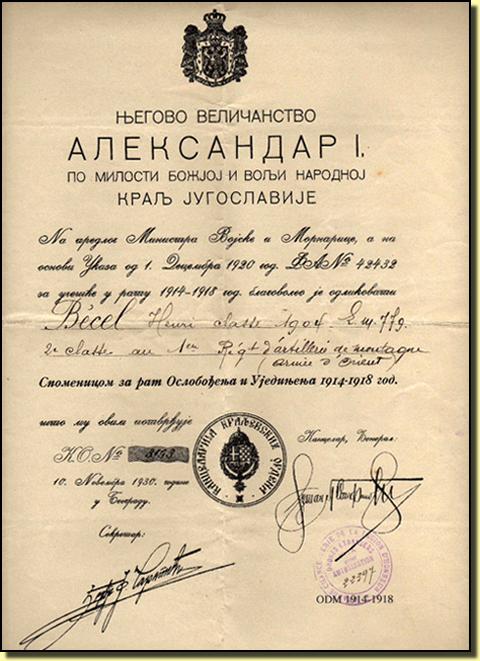 ЊЕГОВО ВЕЛИЧАНСТВО
АЛЕКСАНДАР I.
ПО МИЛОСТИ БОЖЈОЈ И ВОЉИ НАРОДНОЈ
КРАЉ ЈУГОСЛАВИЈЕ
На предлог Министра Војске и Морнарице, а на
основи Указа од 1. Децембра 1920 год. ФА № 42432
за учешће у рату 1914-1918 год. благоволео је одликовати
Bécel Henri classe 1904 L.M. 779
2e classe au 1er Régt d'artillerie de montagne
(armée d'Orient)
Споменицом за рат Ослобођења и Уједињења 1914-1918 год.
што му овим потврђује
К.О. № 3153
10. Новембра 1930. године
у Београду.
КАНЦЕЛАРИЈА КРАЉЕВСКИХ ОРДЕНА
Канцелар, Ђенерал:
Секретар:
AUTORISATION
22397
ODM 1914-1918